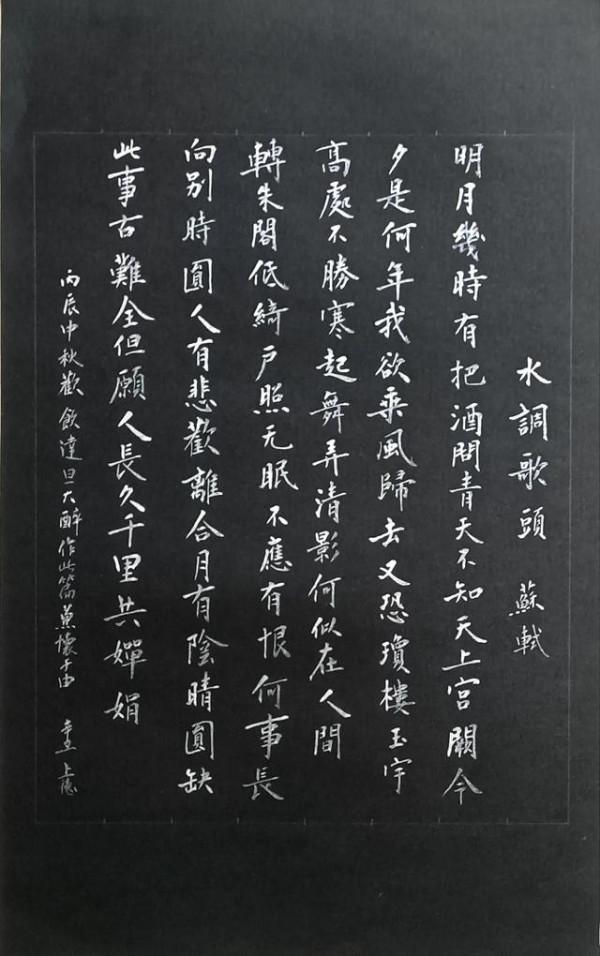 水調歌頭 蘇軾
明月幾時有把酒問青天不知天上宮闕今
夕是何年我欲乘風歸去又恐瓊樓玉宇
高處不勝寒起舞弄清影何似在人間
轉朱閣低綺戶照无眠不應有恨何事長
向別時圓人有悲歡離合月有陰晴圓缺
此事古難全但願人長久千里共嬋娟
丙辰中秋歡飲達旦大醉作此篇兼懷子由